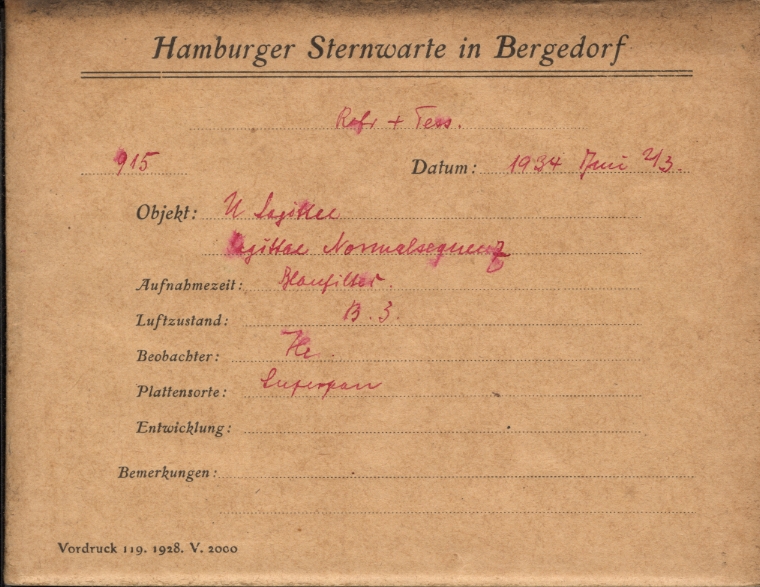 Hamburger Sternwarte in Bergedorf
Refr + Tess.
915 Datum: 1934 Juni 2/3.
Objekt: U Sagittae
Sagittae Normalsequenz
Aufnahmezeit: Blaufilter.
Luftzustand: B. 3.
Beobachter: He.
Plattensorte: Superpan
Entwicklung:
Bemerkungen:
Vordruck 119. 1928. V. 2000